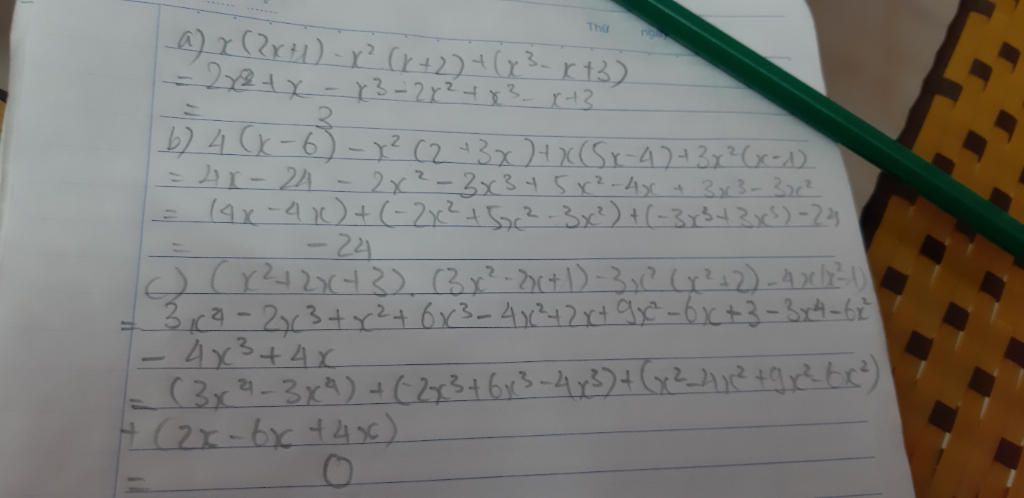 Thứ
ngày
a) x(2x+1) - x² (x+2) + (x³ - x+3)
= 2x² + x - x³ - 2x² + x³ - x+3
= 3
b) 4 (x - 6) - x² (2 + 3x) + x(5x - 4) + 3x² (x - 1)
= 4x - 24 - 2x² - 3x³ + 5x² - 4x + 3x³ - 3x²
= (4x - 4x) + (-2x² + 5x² - 3x²) + (-3x³ + 3x³) - 24
= -24
c) (x² + 2x + 3) . (3x² - 2x + 1) - 3x² (x² + 2) - 4x(x² - 1)
= 3x⁴ - 2x³ + x² + 6x³ - 4x² + 2x + 9x² - 6x + 3 - 3x⁴ - 6x²
- 4x³ + 4x
= (3x⁴ - 3x⁴) + (-2x³ + 6x³ - 4x³) + (x² - 4x² + 9x² - 6x²)
+ (2x - 6x + 4x)
= 0